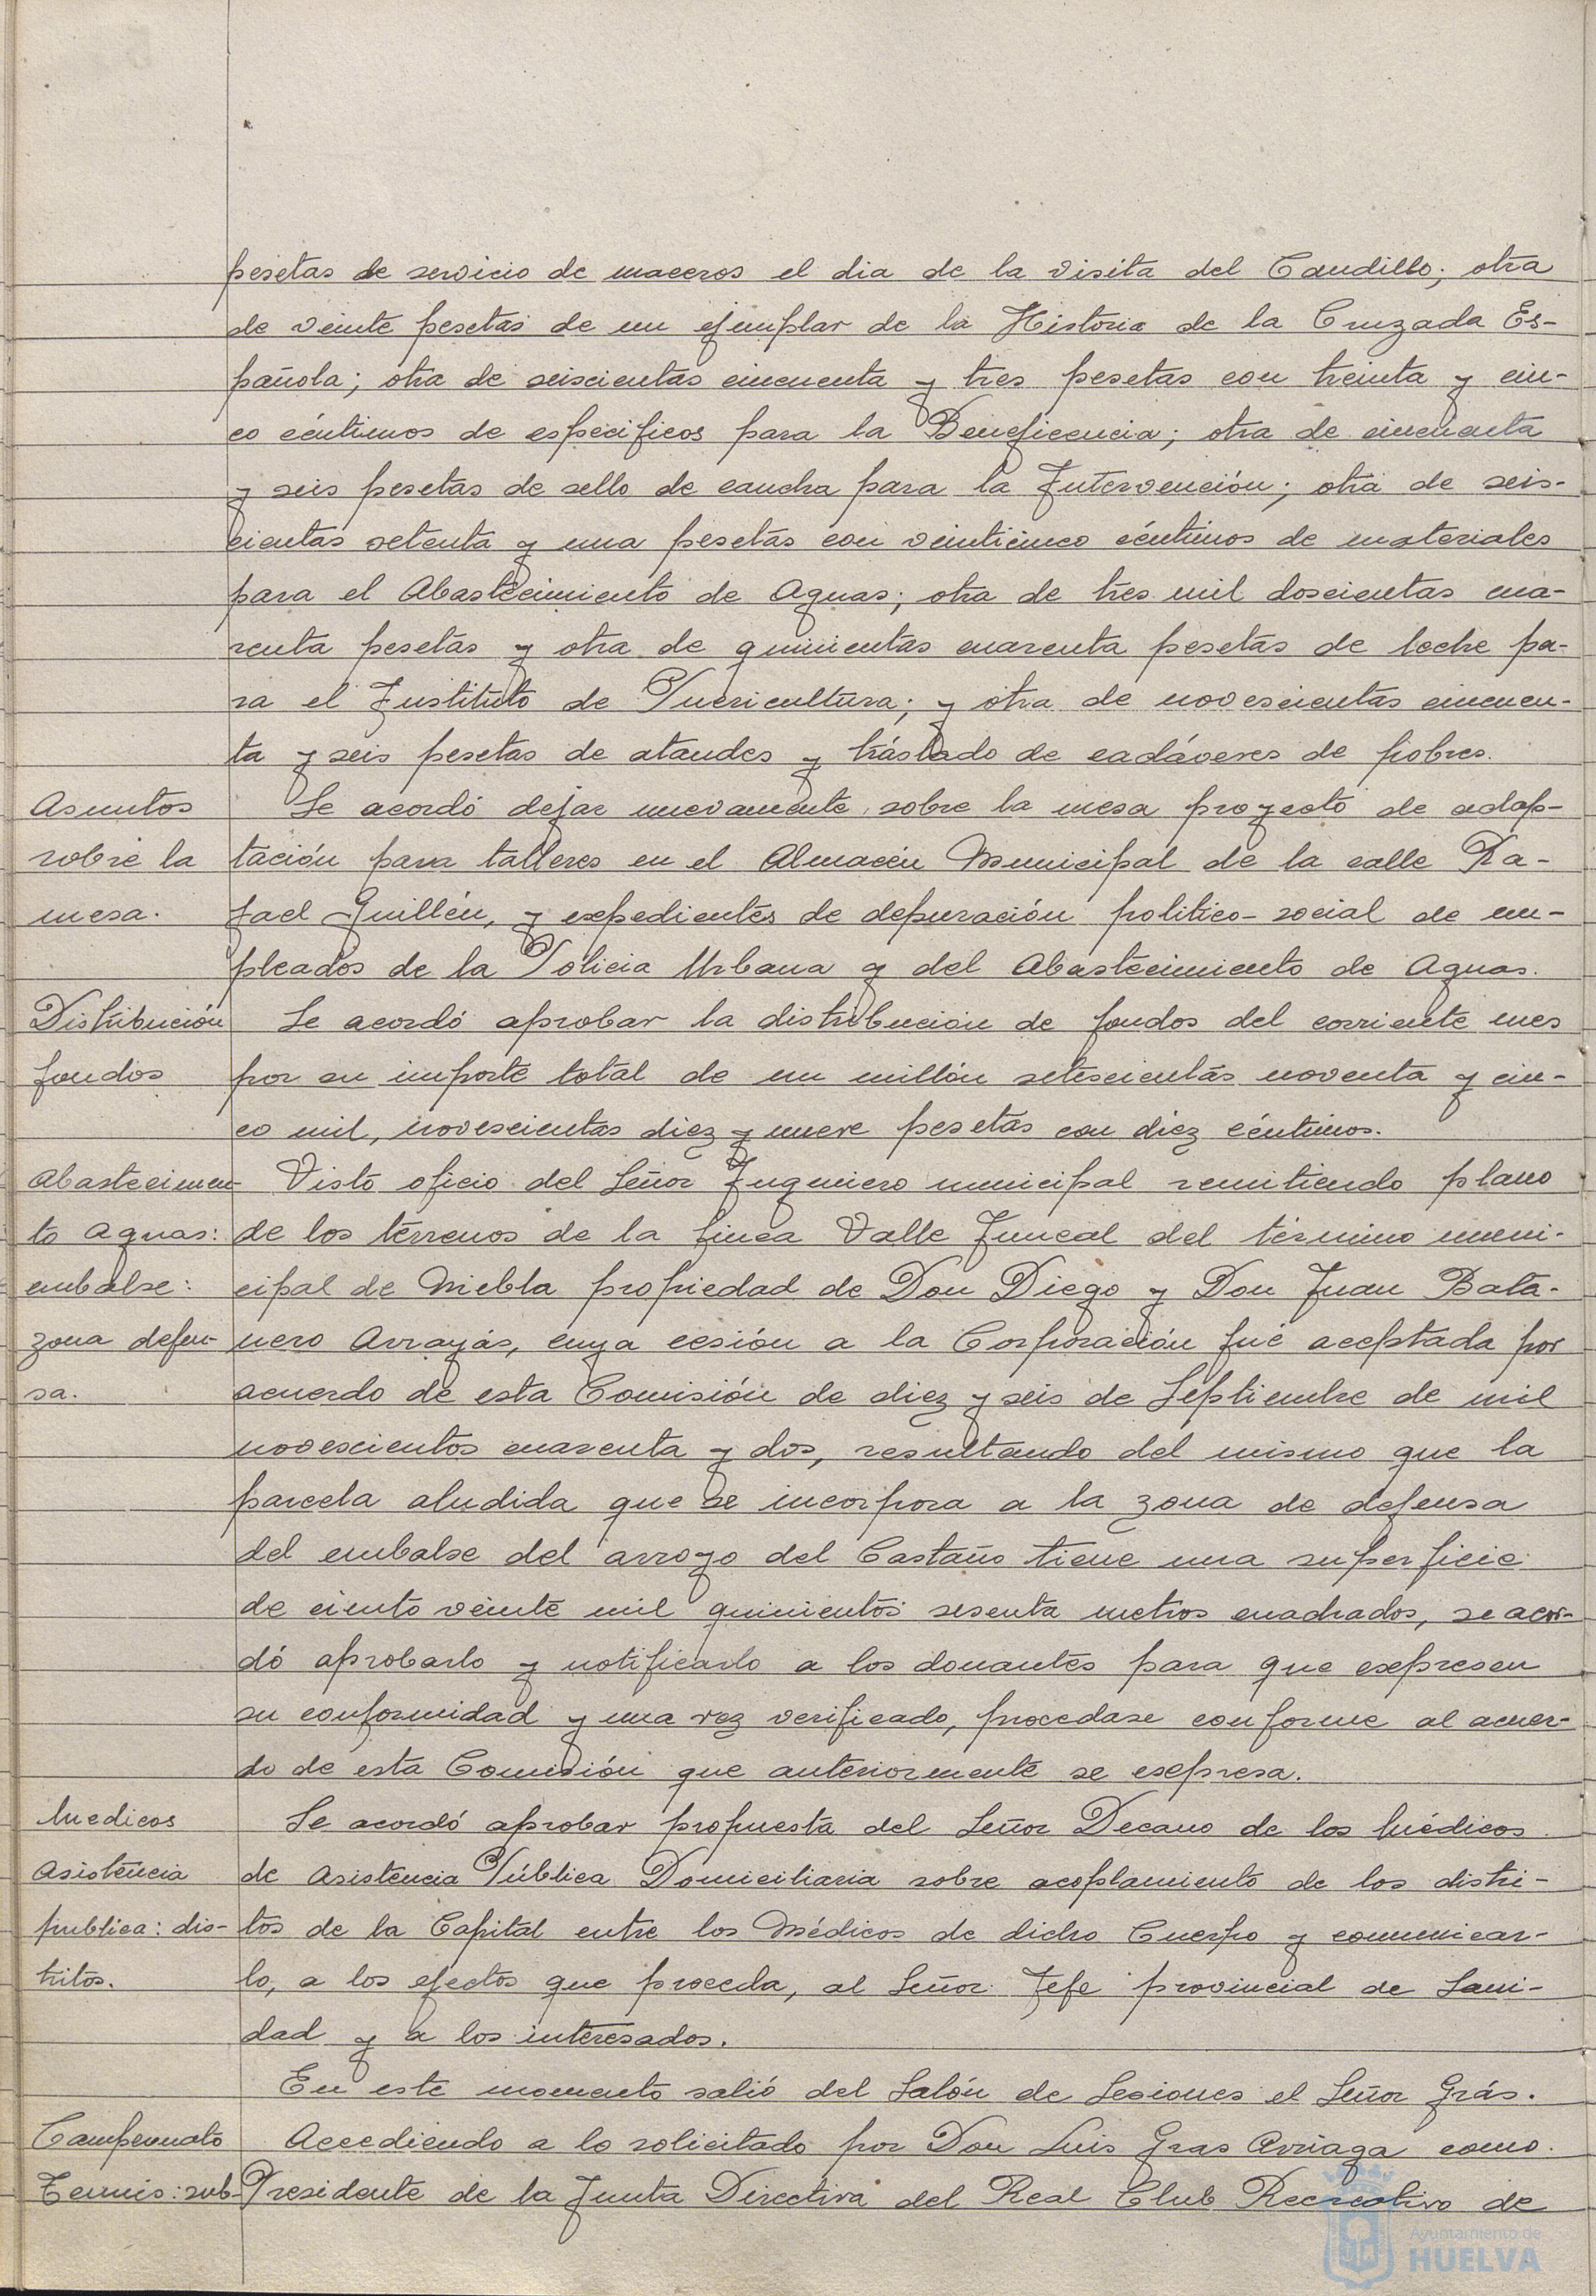 pesetas de servicio de maceros el dia de la visita del Caudillo; otra
de veinte pesetas de un ejemplar de la Historia de la Cruzada Es-
pañola; otra de seiscientas cincuenta y tres pesetas con treinta y cin-
co céntimos de especificos para la Beneficencia; otra de cincuenta
y seis pesetas de sello de caucha para la Intervención; otra de seis-
cientas setenta y una pesetas con veinticinco céntimos de materiales
para el Abastecimiento de Aguas; otra de tres mil doscientas cua-
renta pesetas y otra de quinientas cuarenta pesetas de leche pa-
ra el Instituto de Puericultura; y otra de novescientas cincuen-
ta y seis pesetas de ataudes y tráslado de cadáveres de pobres.
Asuntos
sobre la
mesa.
Se acordó dejar nuevamente sobre la mesa proyecto de adap-
tación para talleres en el Almacén Municipal de la calle Ra-
fael Guillén, y expedientes de depuración politico-social de em-
pleados de la Policia Urbana y del Abastecimiento de Aguas.
Distribución
fondos
Se acordó aprobar la distribución de fondos del corriente mes
por su importe total de un millón setescientas noventa y cin-
co mil, novescientas diez y nueve pesetas con diez céntimos.
Abastecimien-
to Aguas:
embalse:
zona defen-
sa.
Visto oficio del Señor Ingeniero municipal remitiendo plano
de los terrenos de la finca Valle Juncal del término muni-
cipal de Niebla propiedad de Don Diego y Don Juan Bata-
nero Arrayás, cuya cesión a la Corporación fué aceptada por
acuerdo de esta Comisión de diez y seis de Septiembre de mil
novescientos cuarenta y dos, resultando del mismo que la
parcela aludida que se incorpora a la zona de defensa
del embalse del arroyo del Castaño tiene una superficie
de ciento veinte mil quinientos sesenta metros cuadrados, se acor-
dó aprobarlo y notificarlo a los donantes para que expresen
su conformidad y una vez verificado, procedase conforme al acuer-
do de esta Comisión que anteriormente se expresa.
Medicos
Asistencia
publica: dis-
tritos.
Se acordó aprobar propuesta del Señor Decano de los Médicos
de Asistencia Pública Domiciliaria sobre acoplamiento de los distri-
tos de la Capital entre los Médicos de dicho Cuerpo y comunicar-
lo, a los efectos que proceda, al Señor Jefe provincial de Sani-
dad y a los interesados.
En este momento salió del Salón de Sesiones el Señor Grás.
Campeonato
Tennis: sub-
Accediendo a lo solicitado por Don Luis Gras Arriaga como
Presidente de la Junta Directiva del Real Club Recreativo de
Ayuntamiento de
HUELVA